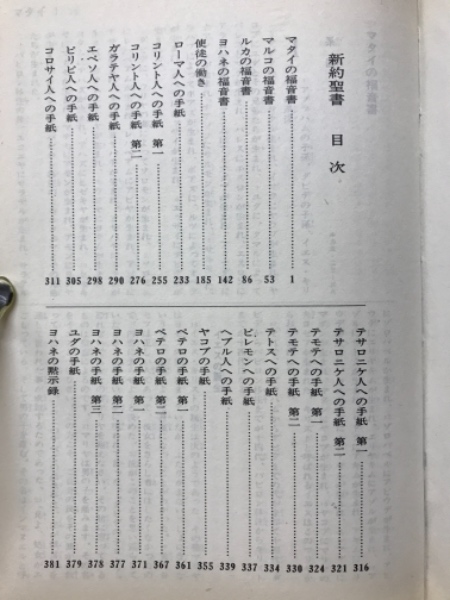 新約聖書 目次
マタイの福音書 1
マルコの福音書 53
ルカの福音書 86
ヨハネの福音書 142
使徒の働き 185
ローマ人への手紙 233
コリント人への手紙 第一 255
コリント人への手紙 第二 276
ガラテヤ人への手紙 290
エペソ人への手紙 298
ピリピ人への手紙 305
コロサイ人への手紙 311
テサロニケ人への手紙 第一 316
テサロニケ人への手紙 第二 321
テモテへの手紙 第一 324
テモテへの手紙 第二 330
テトスへの手紙 334
ピレモンへの手紙 337
ヘブル人への手紙 339
ヤコブの手紙 355
ペテロの手紙 第一 361
ペテロの手紙 第二 367
ヨハネの手紙 第一 371
ヨハネの手紙 第二 377
ヨハネの手紙 第三 378
ユダの手紙 379
ヨハネの黙示録 381